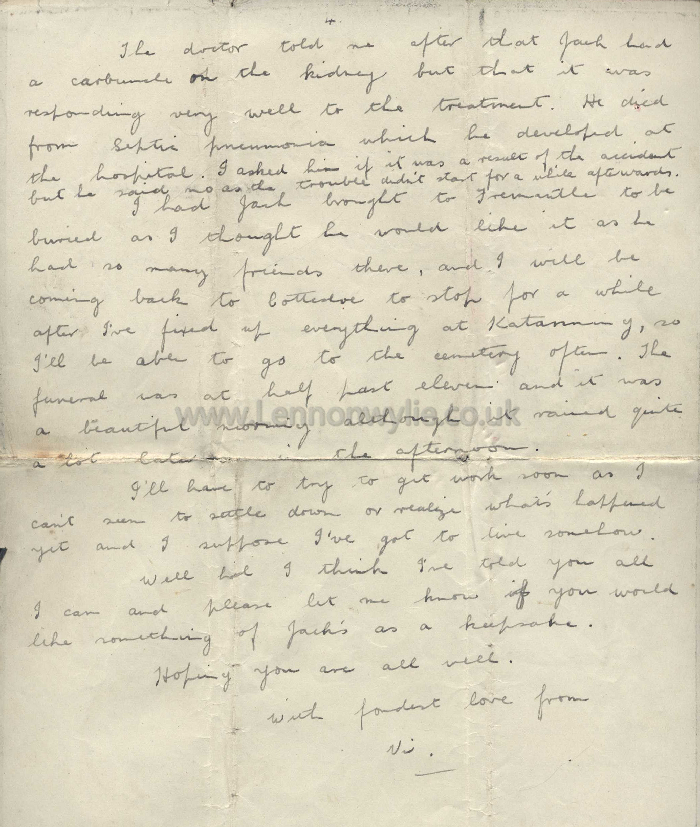 4.
The doctor told me after that Jack had
a carbuncle on the kidney but that it was
responding very well to the treatment. He died
from Septic pneumonia which he developed at
the hospital. I asked him if it was a result of the accident
but he said no as the trouble didn't start for a while afterwards.
I had Jack brought to Fremantle to be
buried as I thought he would like it as he
had so many friends there, and I will be
coming back to Cottesloe to stop for a while
after I've fixed up everything at Katanning, so
I'll be able to go to the cemetery often. The
funeral was at half past eleven and it was
a beautiful morning although it rained quite
a lot later on in the afternoon.
www.Lennonwylie.co.uk
I'll have to try to get work soon as I
can't seem to settle down or realize what's happened
yet and I suppose I've got to live somehow.
Well I think I've told you all
I can and please let me know if you would
like something of Jack's as a keepsake.
Hoping you are all well.
With fondest love from
Vi.